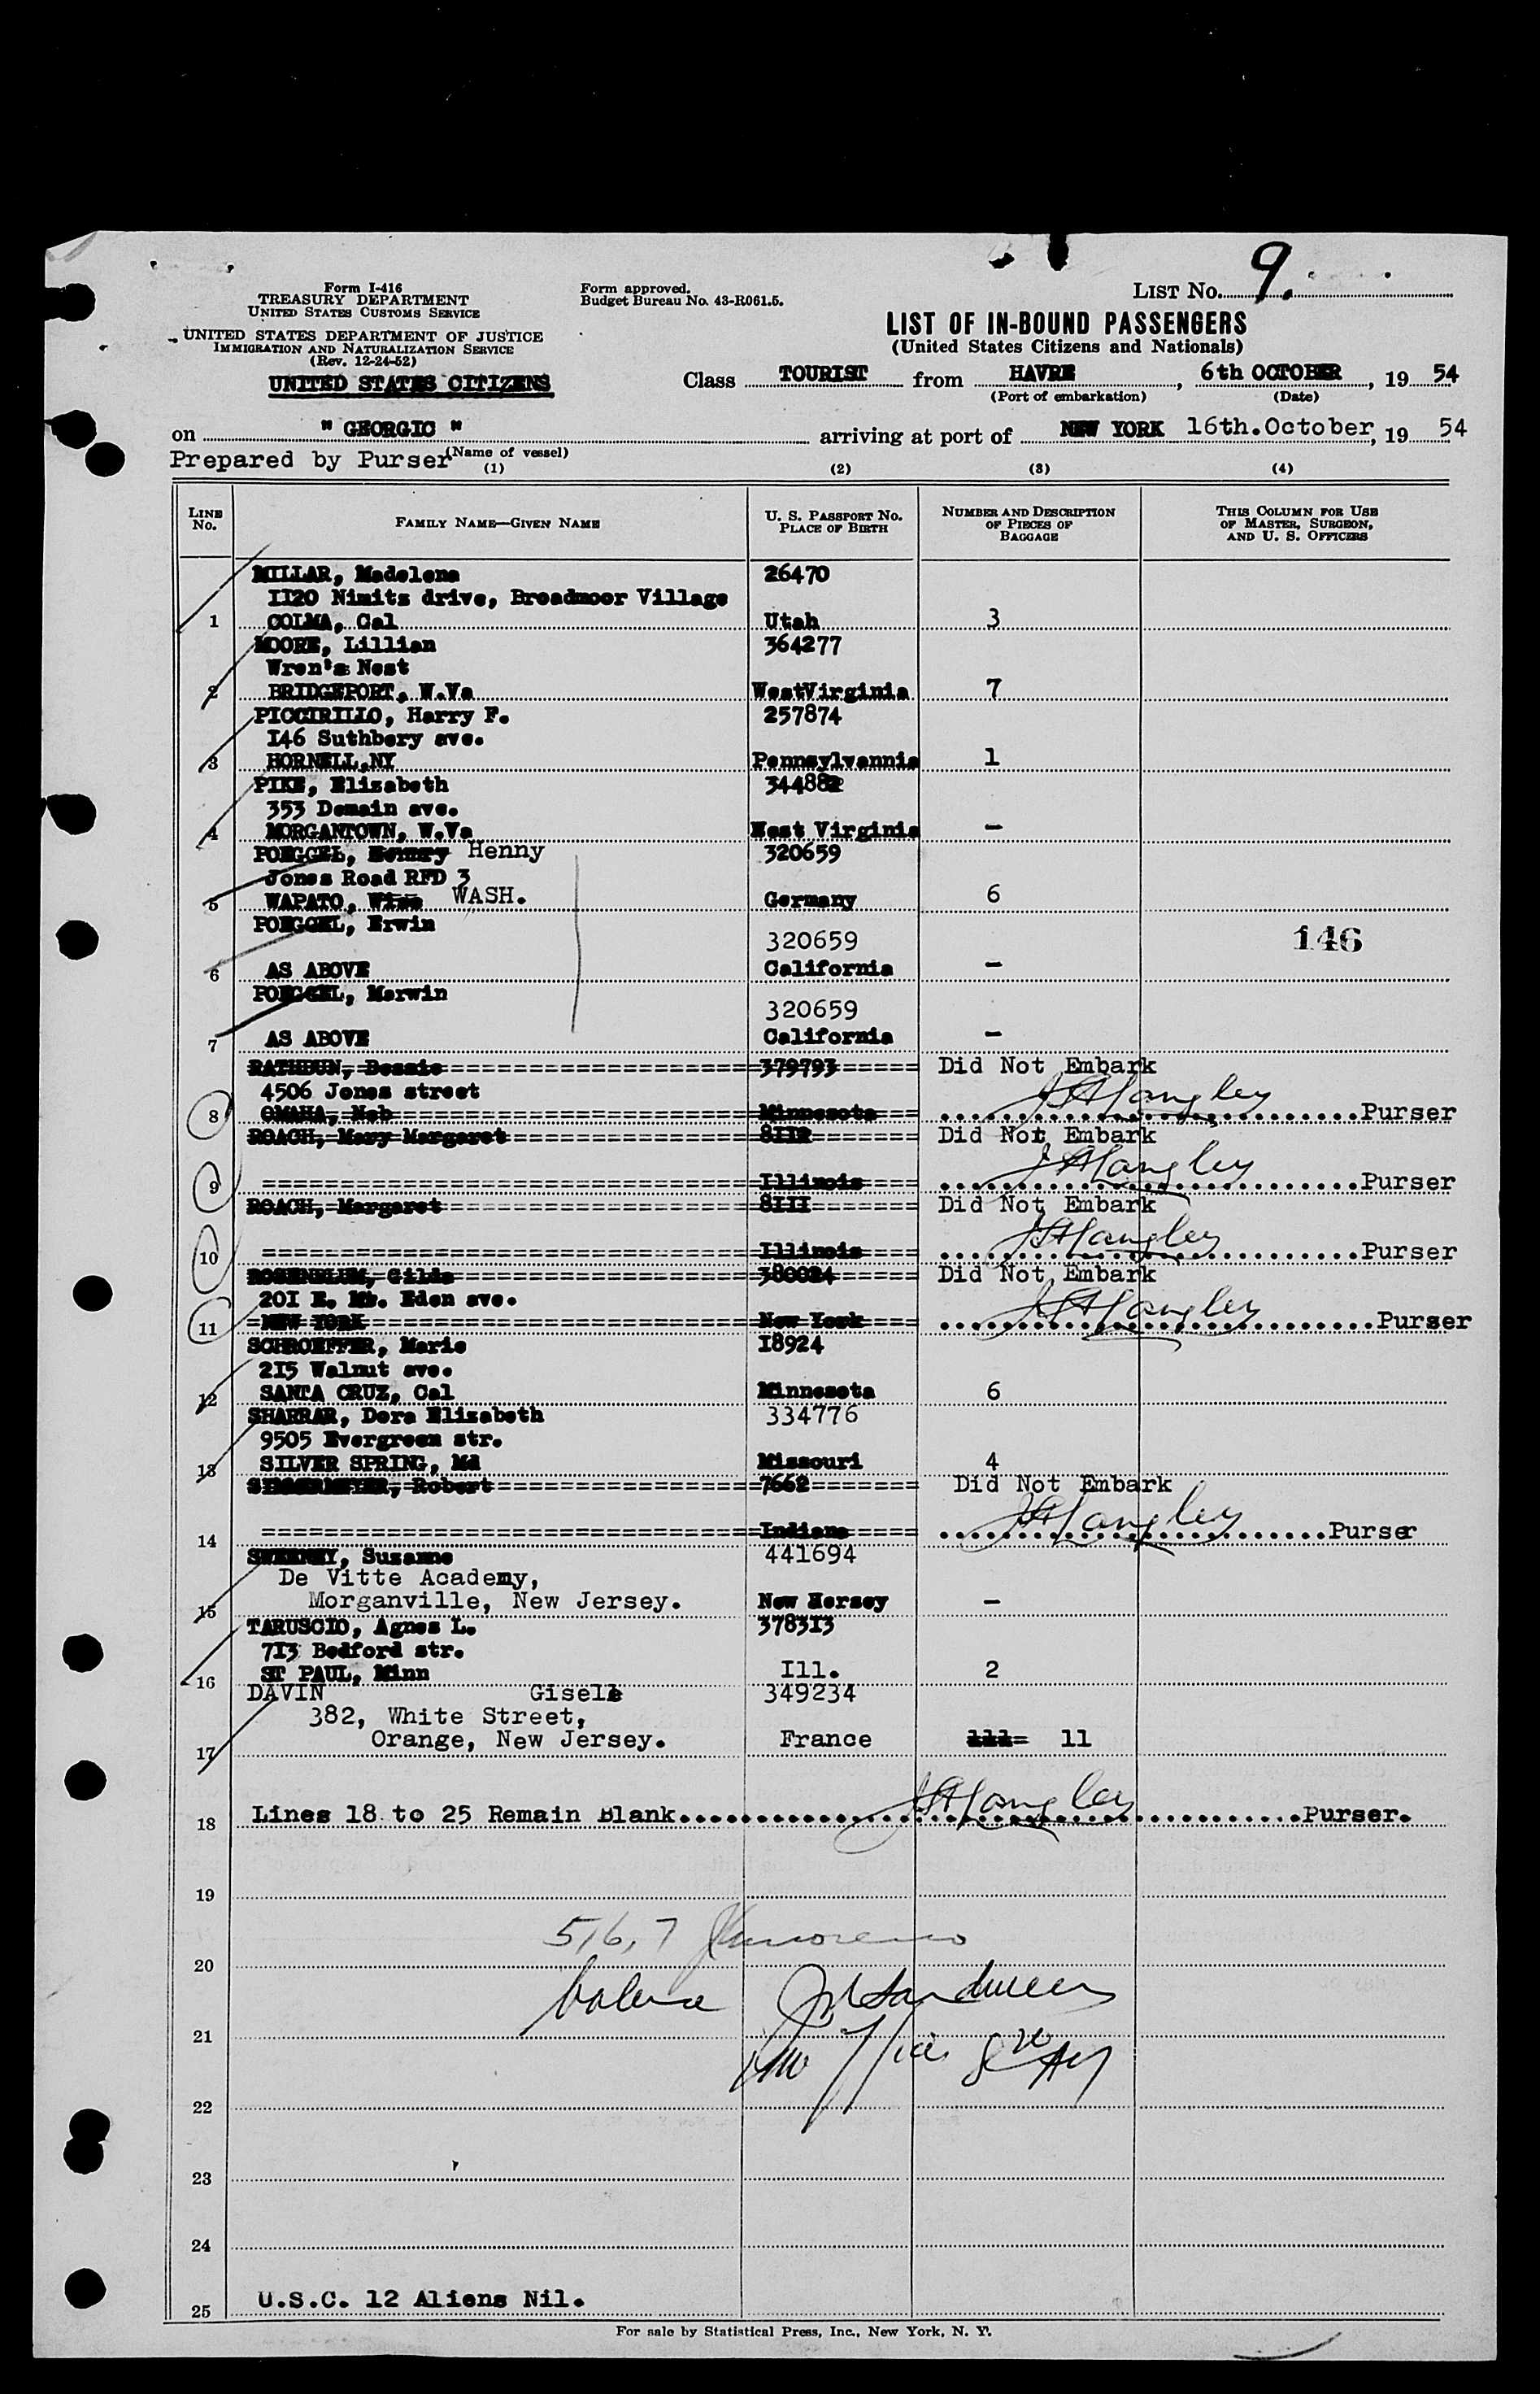 9.
Form I-416
TREASURY DEPARTMENT
UNITED STATES CUSTOMS SERVICE
UNITED STATES DEPARTMENT OF JUSTICE
IMMIGRATION AND NATURALIZATION SERVICE
(Rev. 12-24-52)
UNITED STATES CITIZENS
Form approved.
Budget Bureau No. 43-R061.5.
LIST No.
LIST OF IN-BOUND PASSENGERS
(United States Citizens and Nationals)
Class TOURIST from HAVRE, 6th OCTOBER, 19 54
(Port of embarkation) (Date)
on " GEORGIC " arriving at port of NEW YORK 16th.October, 19 54
Prepared by Purser (Name of vessel)
(1) (2) (3) (4)
LINE No. FAMILY NAME—GIVEN NAME U. S. PASSPORT No. PLACE OF BIRTH NUMBER AND DESCRIPTION OF PIECES OF BAGGAGE THIS COLUMN FOR USE OF MASTER, SURGEON, AND U. S. OFFICERS
MILLAR, Madelena 26470
1120 Nimitz drive, Broadmoor Village
1 COLMA, Cal Utah 3
MOORE, Lillian 364277
Wren's Nest
2 BRIDGEPORT, W.Va WestVirginia 7
PICCIRILLO, Harry F. 257874
146 Suthbery ave.
3 HORNELL,NY Pennsylvannia 1
PIKE, Elizabeth 344882
353 Demain ave.
4 MORGANTOWN, W.Va West Virginia -
POEGGEL, Henny 320659
Jones Road RFD 3
5 WAPATO, WASH. Germany 6
POEGGEL, Erwin 320659
6 AS ABOVE California -
146
POEGGEL, Merwin 320659
7 AS ABOVE California -
RATHBUN, Bessie 379793 Did Not Embark
4506 Jones street
8 OMAHA, Neb Minnesota JHLangley Purser
ROACH, Mary Margaret 8112 Did Not Embark
9 Illinois JHLangley Purser
ROACH, Margaret 8111 Did Not Embark
10 Illinois JHLangley Purser
ROSENBLUM, Gilda 380024 Did Not Embark
201 E. Mt. Eden ave.
11 NEW YORK New York JHLangley Purser
SCHROEFFER, Marie 18924
215 Walnut ave.
12 SANTA CRUZ, Cal Minnesota 6
SHARRAR, Dora Elizabeth 334776
9505 Evergreen str.
13 SILVER SPRING, Md Missouri 4
Robert 7662 Did Not Embark
14 Indiana JHLangley Purser
SWEENEY, Suzanne 441694
De Vitte Academy,
15 Morganville, New Jersey. New Jersey -
TARUSCIO, Agnes L. 378313
713 Bedford str.
16 ST PAUL, Minn Ill. 2
DAVIN Gisele 349234
382, White Street,
Orange, New Jersey. France 11
17
18 Lines 18 to 25 Remain Blank JHLangley Purser.
19
5, 6, 7
20
balance
21
22
23
24
25 U.S.C. 12 Aliens Nil.
For sale by Statistical Press, Inc., New York, N. Y.